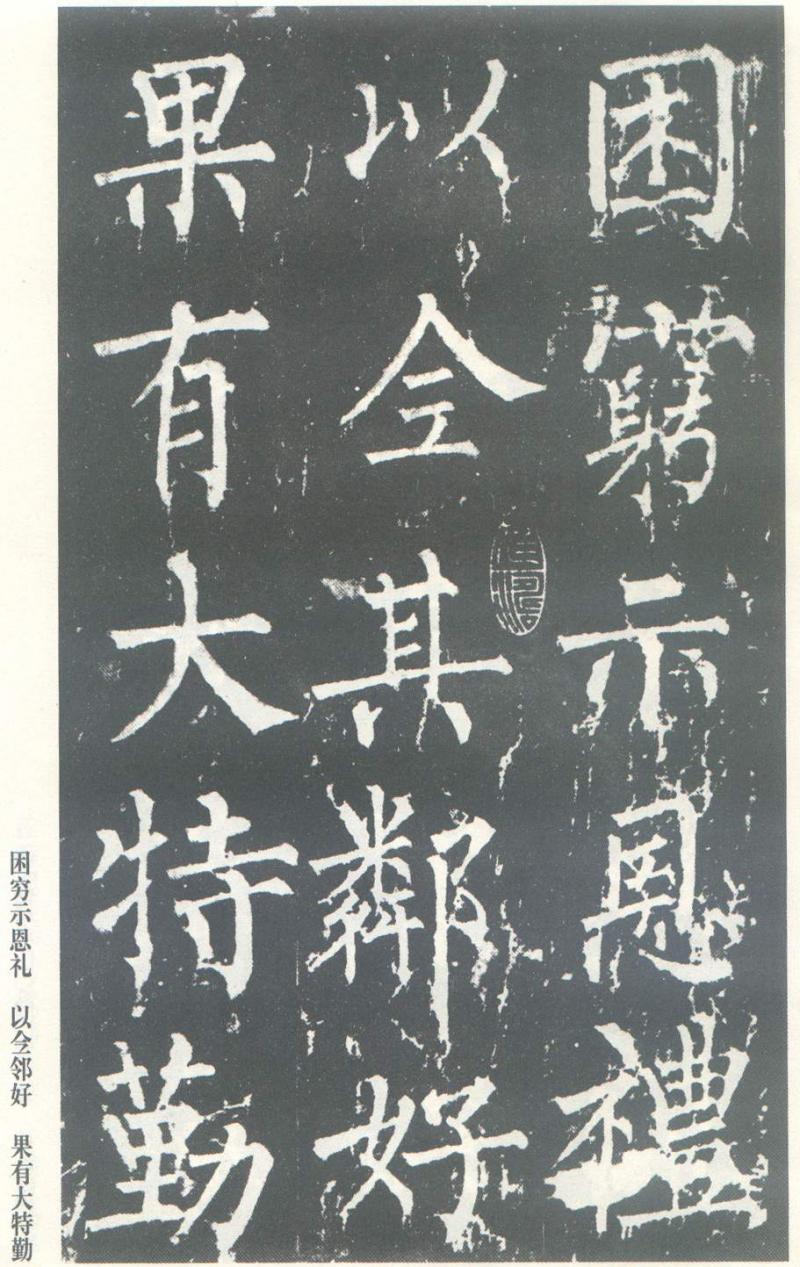 困窮示恩禮
以仝其鄰好
果有大特勤
困穷示恩礼 以仝邻好 果有大特勤